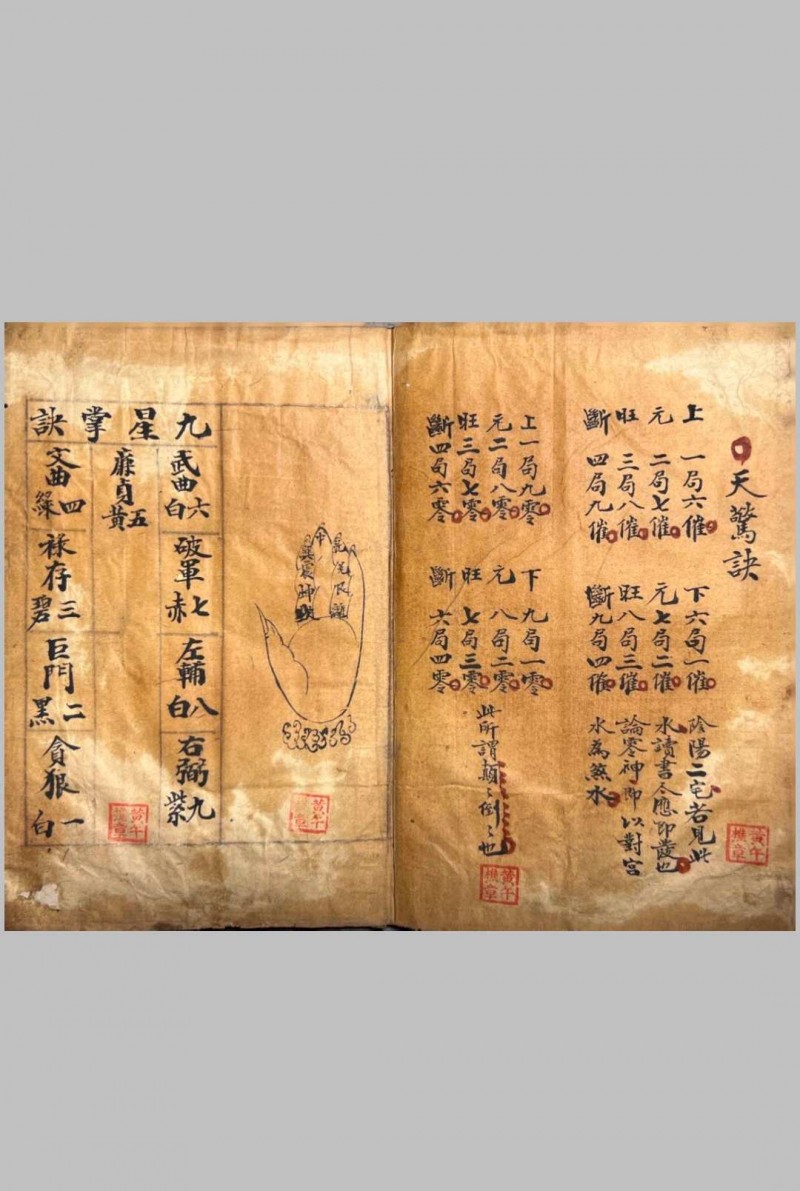 天驚訣
上一局六催 下六局一催 陰陽二宅若見此
元二局七催 元七局二催 水讀書應即發也
旺三局八催 旺八局三催 論零神即以對宮
斷四局九催 斷九局四催 水為煞水
上一局九零 下九局一零
元二局八零 元八局二零
旺三局七零 旺七局三零
斷四局六零 斷六局四零
此所謂顛々倒々也
乾兌艮離
中
巽震坤坎
九星掌訣
武曲六白 破軍七赤 左輔八白 右弼九紫
廉貞五黃
文曲四綠 祿存三碧 巨門二黑 貪狼一白